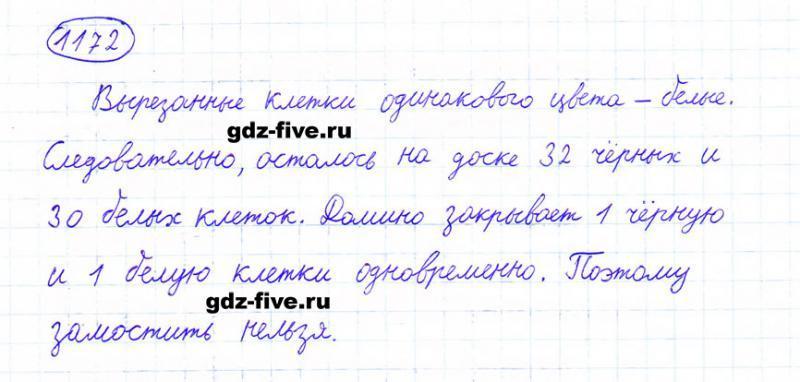 1172
Вырезанные клетки одинакового цвета – белые.
gdz-five.ru
Следовательно, осталось на доске 32 чёрных и
30 белых клеток. Домино закрывает 1 чёрную
и 1 белую клетки одновременно. Поэтому
gdz-five.ru
замостить нельзя.